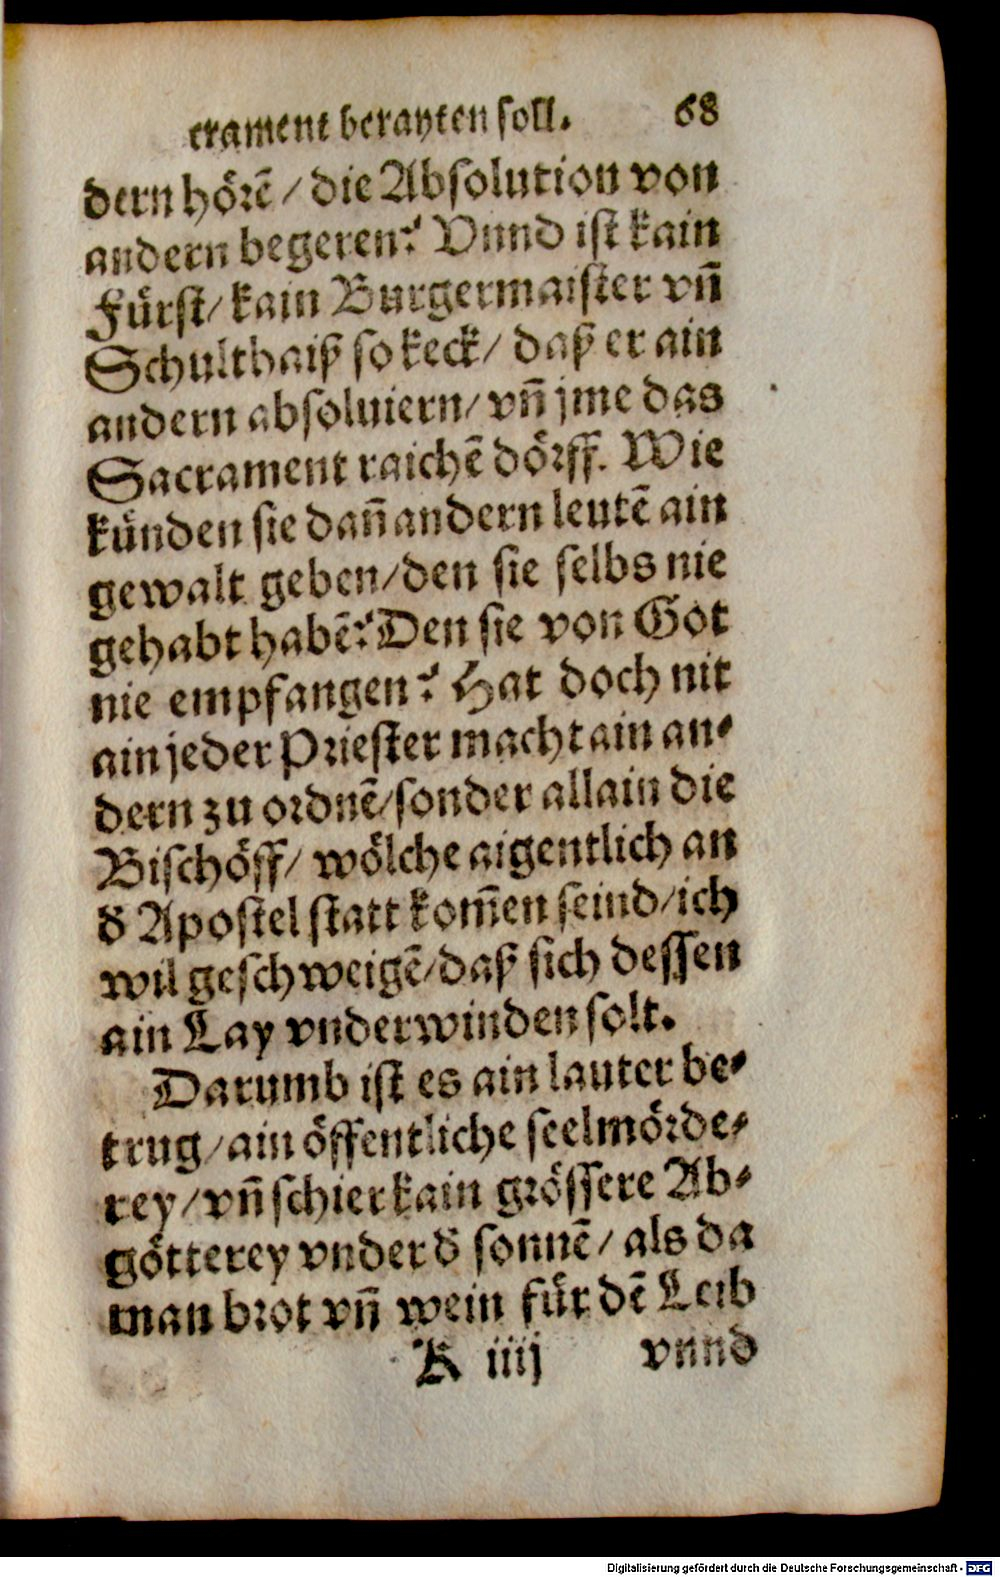 crament berayten soll. 68
dern hörē / die Absolution von
andern begeren? Vnnd ist kain
Fürst / kain Burgermaister vñ
Schulthaiß so keck / daß er ain
andern absoluiern / vñ jme das
Sacrament raichē dörff. Wie
künden sie dañ andern leutē ain
gewalt geben / den sie selbs nie
gehabt habē? Den sie von Got
nie empfangen? Hat doch nit
ain jeder Priester macht ain an⸗
dern zu ordnē / sonder allain die
Bischöff / wölche aigentlich an
d̄ Apostel statt kom̄en seind / ich
wil geschweigē / daß sich dessen
ain Lay vnderwinden solt.
Darumb ist es ain lauter be⸗
trug / ain öffentliche seelmörde⸗
rey / vñ schier kain grössere Ab⸗
götterey vnder d̄ sonnē / als da
man brot vñ wein für dē Leib
K iiij vnnd
Digitalisierung gefördert durch die Deutsche Forschungsgemeinschaft - DFG